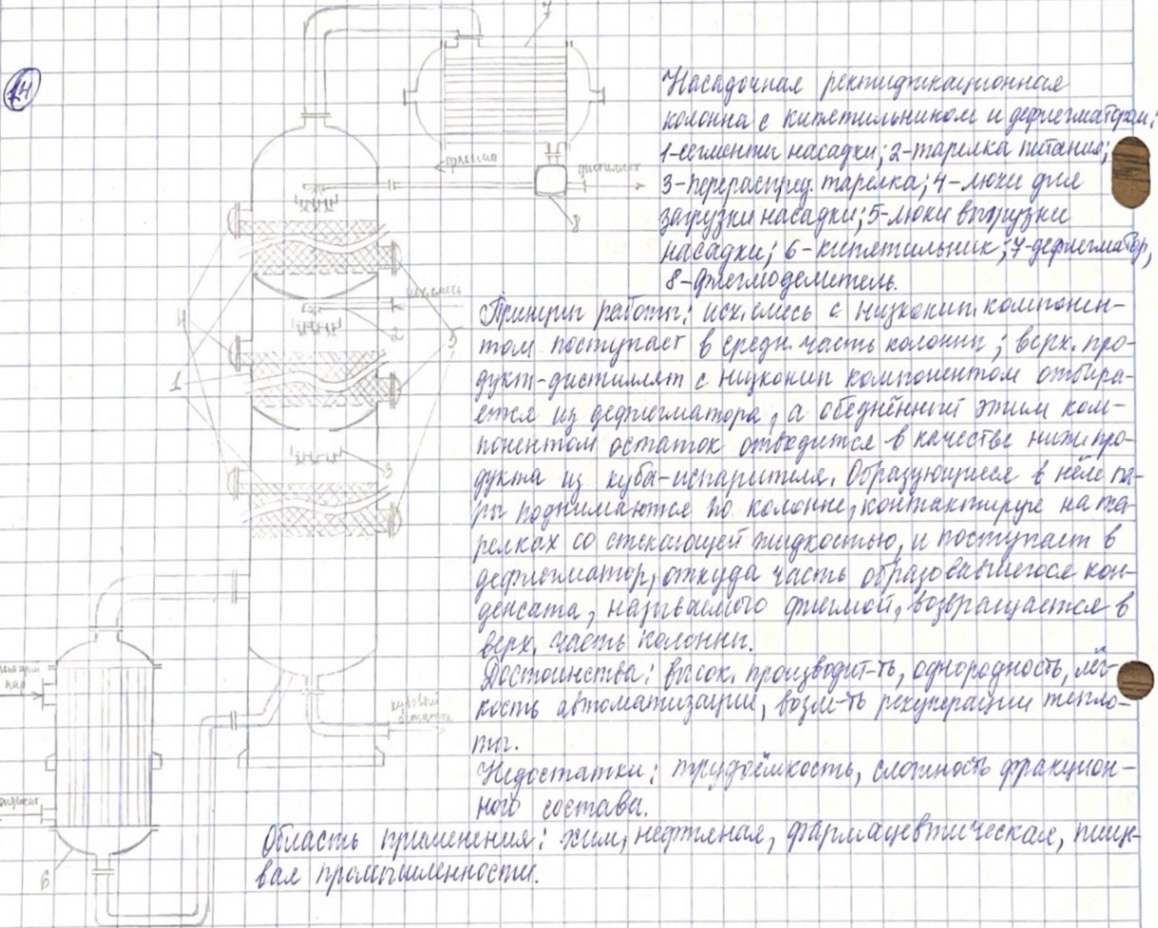 14
7
Насадочная ректификационная
колонна с кипятильником и дефлегматором:
1-сегменты насадки; 2-тарелка питания;
3-перераспред. тарелка; 4-люки для
загрузки насадки; 5-люки выгрузки
насадки; 6-кипятильник; 7-дефлегматор,
8-флегмоделитель.
флегма
дистиллят
8
исх. смесь
4
2
5
1
3
Принцип работы: исх. смесь с низкокип. компонен-
том поступает в средн. часть колонны; верх. про-
дукт-дистиллят с низкокип компонентом отбира-
ется из дефлегматора, а обеднённый этим ком-
понентом остаток отводится в качестве нижн. про-
дукта из куба-испарителя. Образующиеся в нём па-
ры поднимаются по колонне, контактируя на та-
релках со стекающей жидкостью, и поступает в
дефлегматор, откуда часть образовавшегося кон-
денсата, называемого флегмой, возвращается в
верх. часть колонны.
Достоинства: высок. производит-ть, однородность, лёг-
кость автоматизации, возм-ть рекуперации тепло-
ты.
Недостатки: трудоёмкость, сложность фракцион-
ного состава.
пар
кубовый
остаток
6
Область применения: хим, нефтяная, фармацевтическая, пище-
вая промышленности.